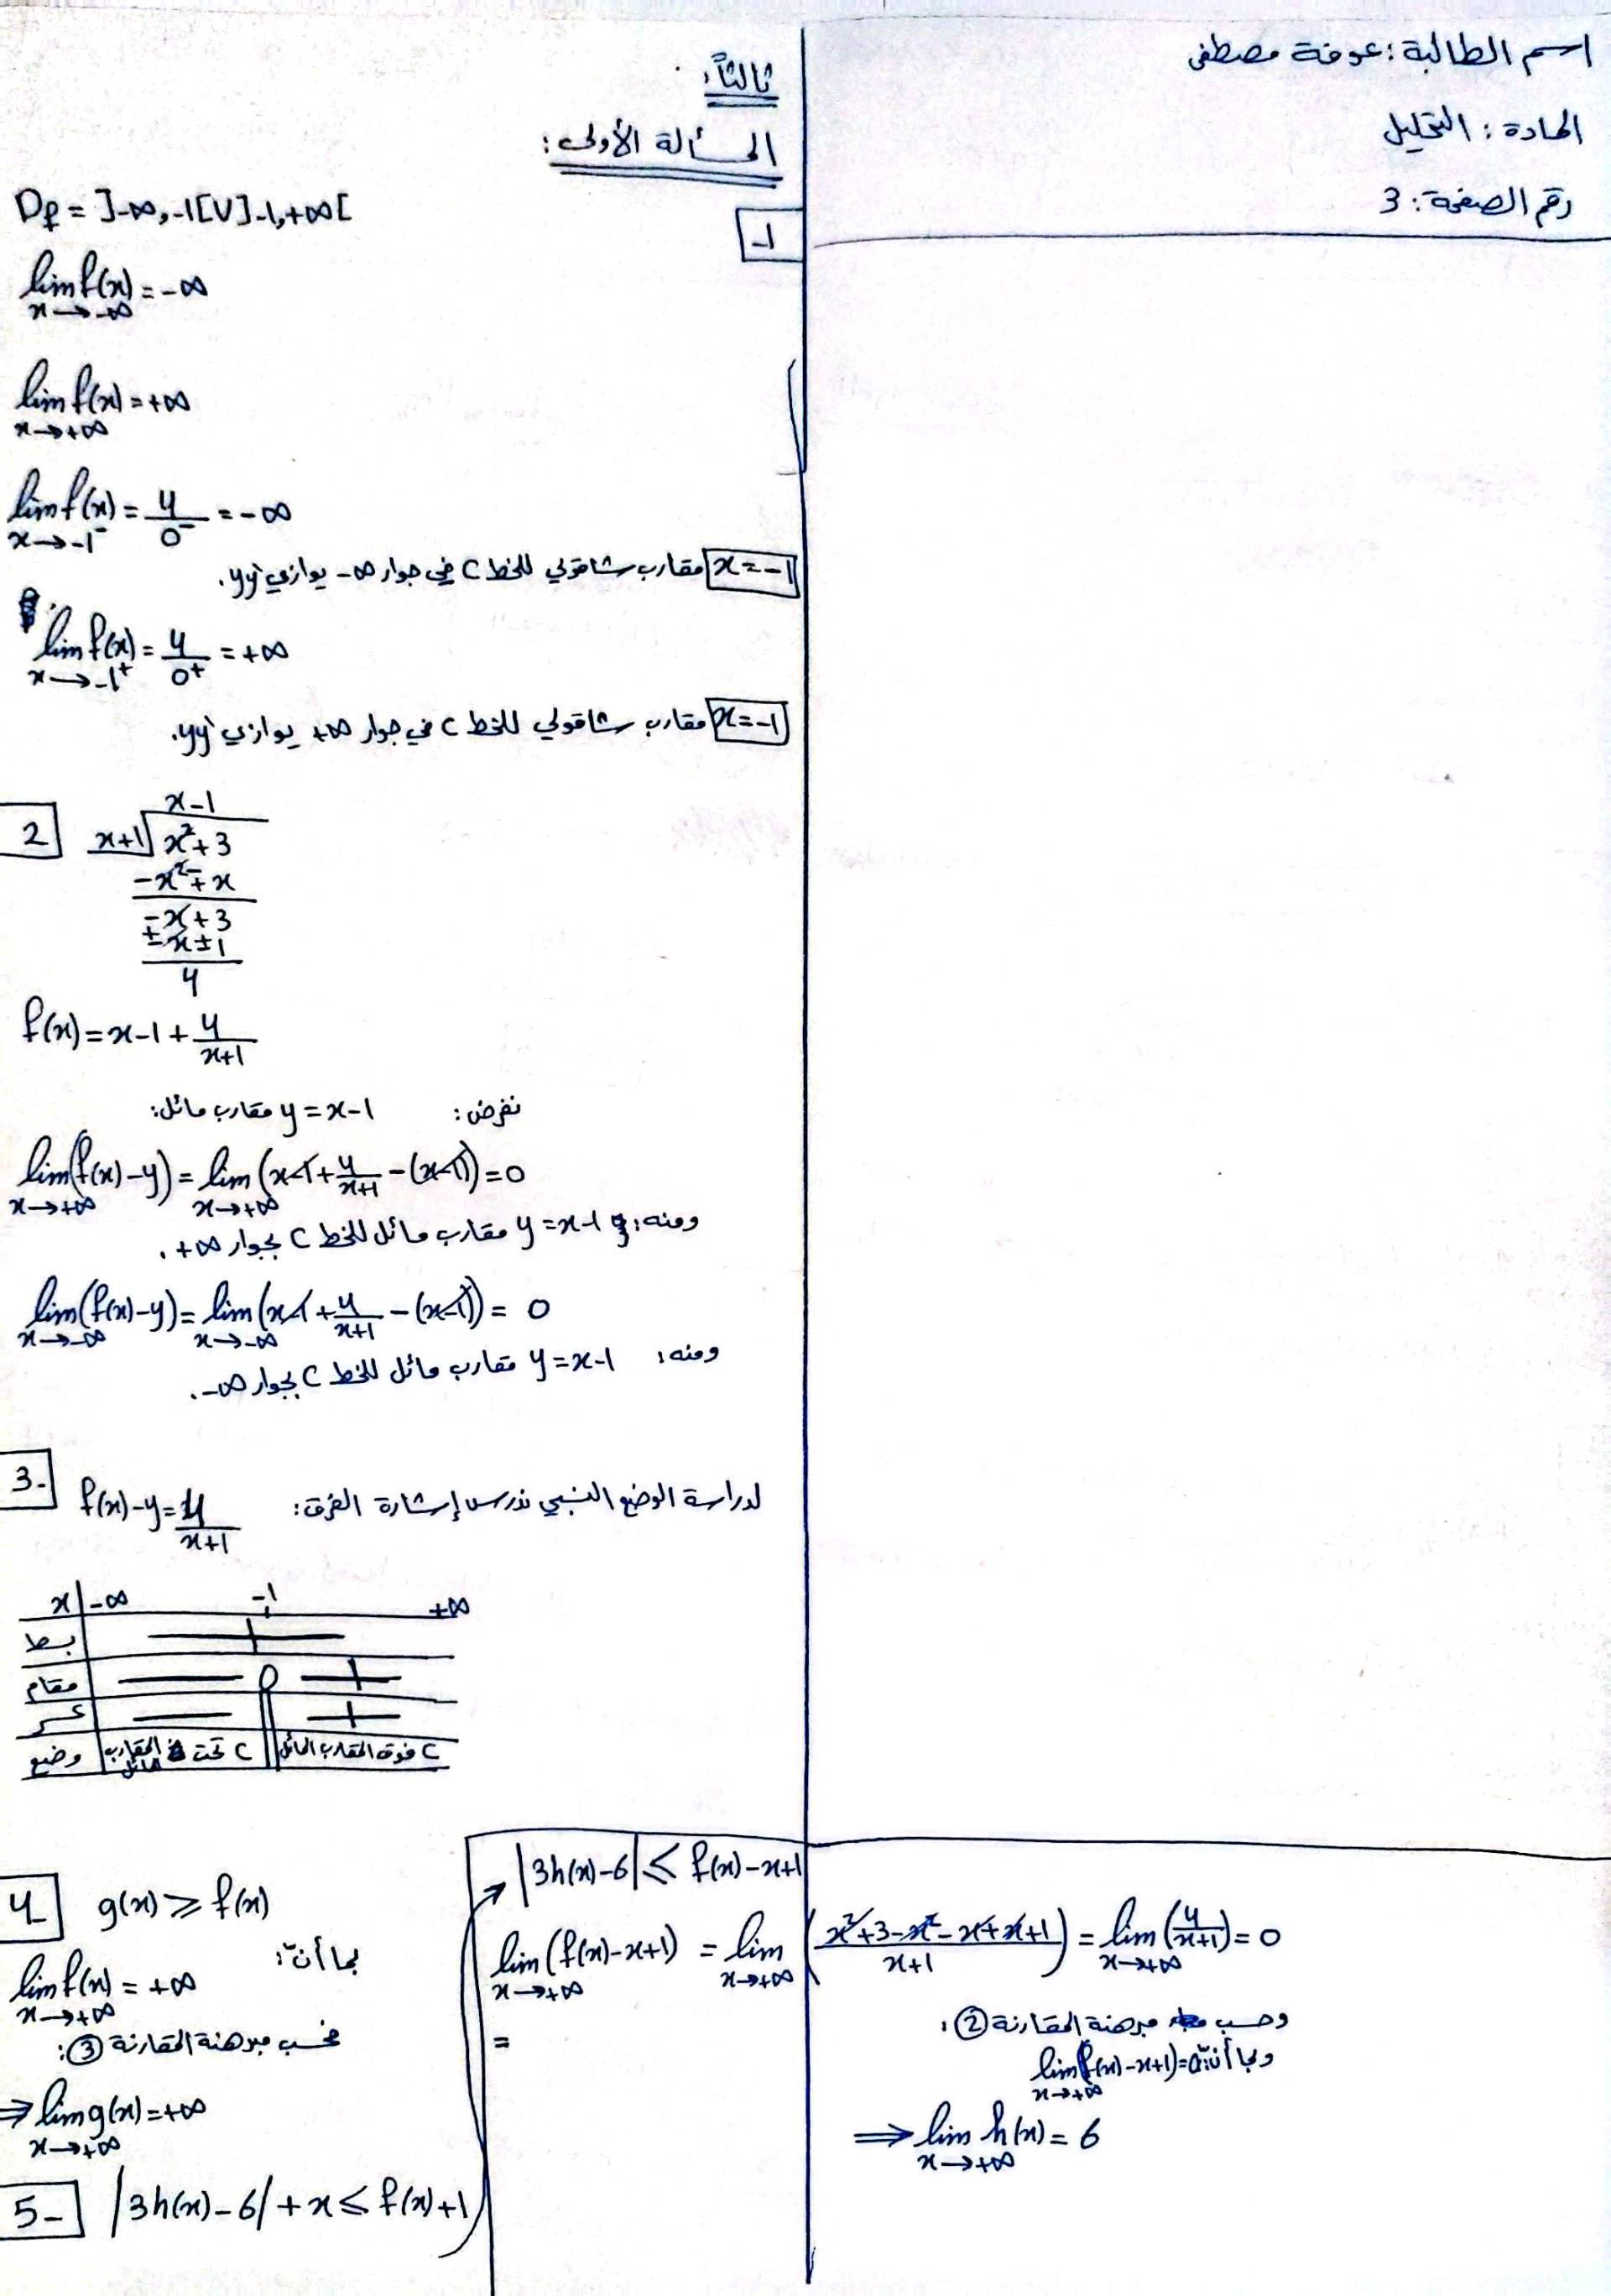 اسم الطالبة: عوفة مصطفى
المادة: التحليل
رقم الصفحة: 3
ثالثاً:
المسألة الأولى:
1-
Df = ]-∞,-1[U]-1,+∞[
lim f(x) = -∞
x→-∞
lim f(x) = +∞
x→+∞
lim f(x) = 4/0⁻ = -∞
x→-1⁻
x=-1 مقارب شاقولي للخط C في جوار -∞ يوازي yy'.
lim f(x) = 4/0⁺ = +∞
x→-1⁺
x=-1 مقارب شاقولي للخط C في جوار +∞ يوازي yy'.
2
x-1
x+1 x²+3
-x² ∓ x
-x+3
±x±1
4
f(x) = x-1 + 4/(x+1)
نفرض: y = x-1 مقارب مائل:
lim (f(x)-y) = lim (x-1 + 4/(x+1) - (x-1)) = 0
x→+∞ x→+∞
ومنه: y = x-1 مقارب مائل للخط C بجوار +∞.
lim (f(x)-y) = lim (x-1 + 4/(x+1) - (x-1)) = 0
x→-∞ x→-∞
ومنه: y = x-1 مقارب مائل للخط C بجوار -∞.
3-
لدراسة الوضع النسبي ندرس إشارة الفرق: f(x)-y = 4/(x+1)
x -∞ -1 +∞
بسط +
مقام - 0 +
كسر - +
وضع C تحت المقارب المائل C فوق المقارب المائل
4- g(x) ≥ f(x)
بما أنّ:
lim f(x) = +∞
x→+∞
فحسب مبرهنة المقارنة ③:
⇒ lim g(x) = +∞
x→+∞
5- |3h(x)-6| + x ≤ f(x)+1
|3h(x)-6| ≤ f(x)-x+1
lim (f(x)-x+1) = lim ((x²+3-x²-x+x+1)/(x+1)) = lim (4/(x+1)) = 0
x→+∞ x→+∞ x→+∞
=
وحسب مبرهنة المقارنة ②:
وبما أنّ: lim (f(x)-x+1)=0
x→+∞
⇒ lim h(x) = 6
x→+∞